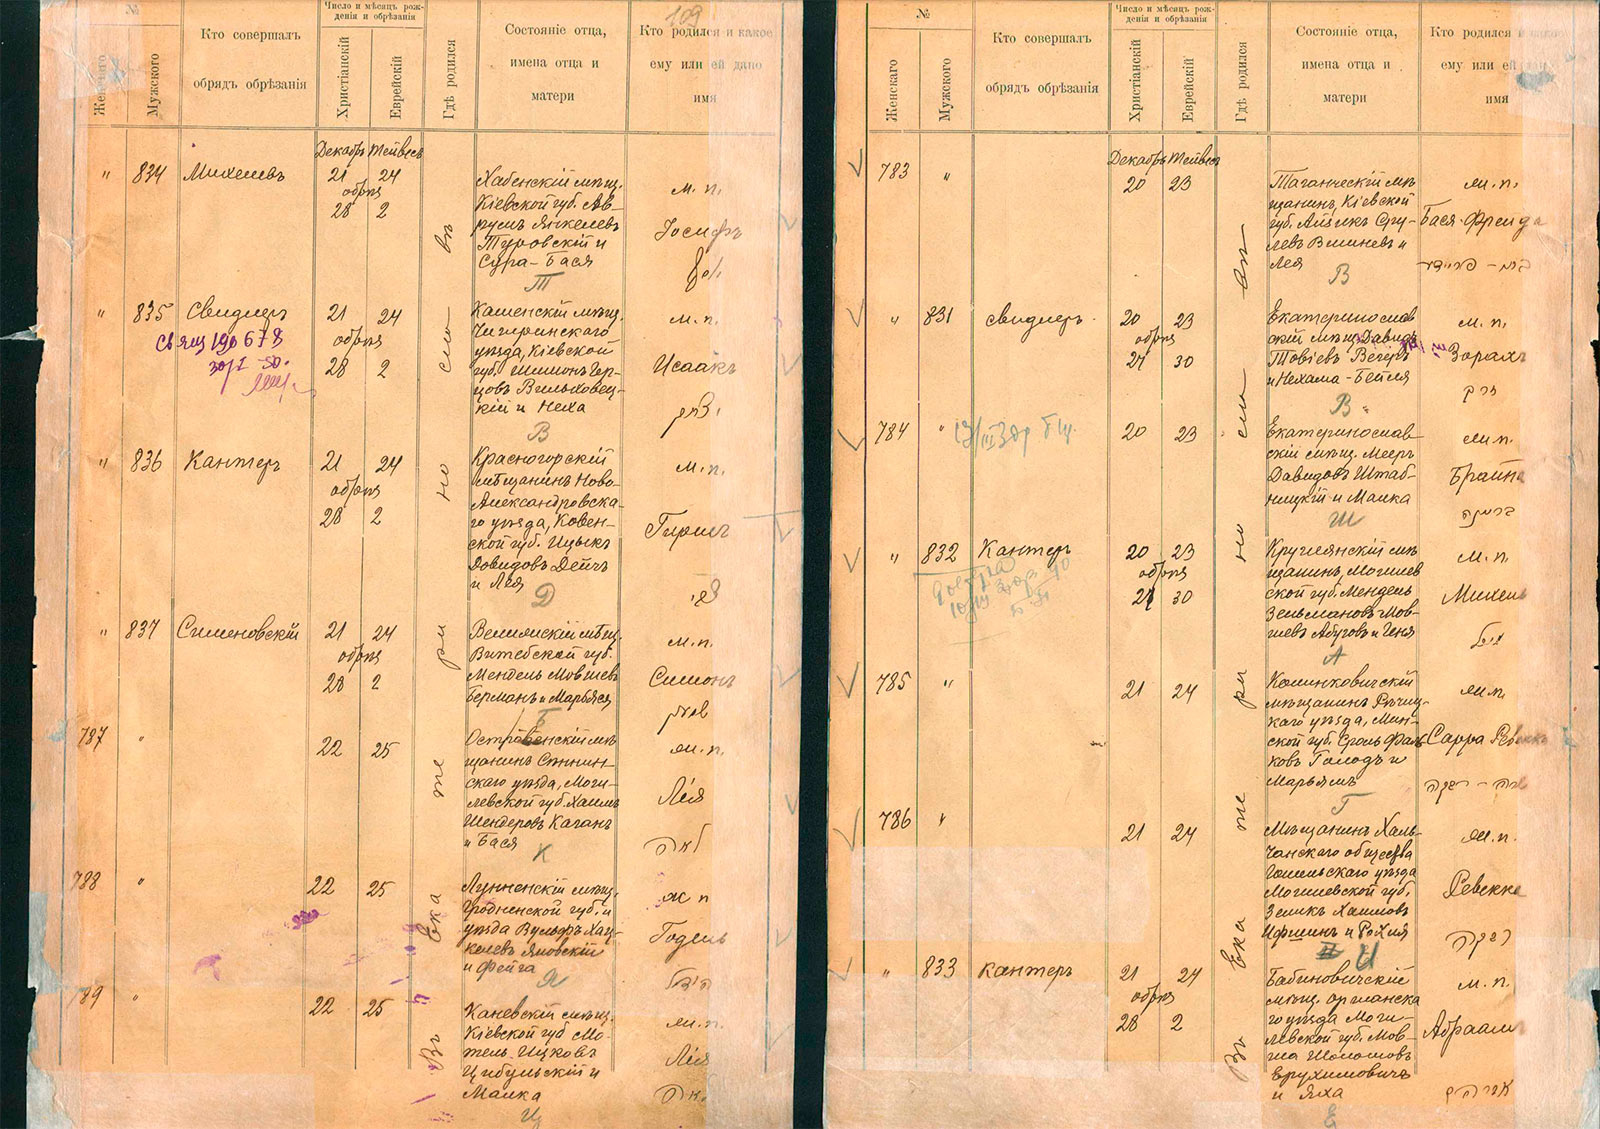 109
№
Женскаго
Мужского
Кто совершалъ
обрядъ обрѣзанія
Число и мѣсяцъ рож-
денія и обрѣзанія
Христіанскій
Еврейскій
Гдѣ родился
Состояніе отца,
имена отца и
матери
Кто родился и какое
ему или ей дано
имя
Въ Екатеринославѣ
Декабрь Тейвесъ
" 834 Михелевъ 21 24
обрѣз
28 2
Хабенскій мѣщ.
Кіевской губ. Ав-
румъ Янкелевъ
Туровскій и
Сура-Бася
Т
м. п.
Іосифъ
" 835 Свидлеръ 21 24
обрѣз
28 2
Каменскій мѣщ.
Чигиринскаго
уѣзда, Кіевской
губ. Шимонъ Гер-
цовъ Вильховец-
кій и Неха
В
м. п.
Исаакъ
" 836 Кантеръ 21 24
обрѣз
28 2
Красногорскій
мѣщанинъ Ново-
Александровска-
го уѣзда, Ковен-
ской губ. Ицыкъ
Довидовъ Дейчъ
и Лея
Д
м. п.
Гиршъ
" 837 Симоновскій 21 24
обрѣз
28 2
Велижскій мѣщ.
Витебской губ.
Мендель Мовшев
Берманъ и Марьяся
Б
м. п.
Симонъ
787 " 22 25
Островенскій мѣ
щанинъ Сѣннин-
скаго уѣзда, Моги-
левской губ. Хаимъ
Шендеровъ Каганъ
и Бася
К
ж. п.
Лея
לאה
788 " 22 25
Лунненскій мѣщ.
Гродненской губ. и
уѣзда Вульфъ Хац-
келевъ Яновскій
и Фейга
Я
ж п
Годель
789 " 22 25
Каневскій мѣщ.
Кіевской губ. Мо-
тель Ицковъ
Цибульскій и
Малка
Ц
ж. п.
Лея
לאה
№
Женскаго
Мужского
Кто совершалъ
обрядъ обрѣзанія
Число и мѣсяцъ рож-
денія и обрѣзанія
Христіанскій
Еврейскій
Гдѣ родился
Состояніе отца,
имена отца и
матери
Кто родился и какое
ему или ей дано
имя
Въ Екатеринославѣ
Декабрь Тейвесъ
783 " 20 23
Таганческій мѣ
щанинъ, Кіевской
губ. Айзикъ Сру-
левъ Вишневъ и
Лея
В
ж. п.
Бася-Фрейда
" 831 Свидлеръ 20 23
обрѣз
27 30
Екатеринослав
скій мѣщ. Давидъ
Товіевъ Вечеръ
и Нехама-Бейля
В
м. п.
Зорахъ
זרח
784 " 20 23
Екатеринослав-
скій мѣщ. Мееръ
Давидовъ Штаб-
ницкій и Малка
Ш
ж. п.
Брайна
" 832 Кантеръ 20 23
обрѣз
27 30
Круглянскій мѣ
щанинъ, Могилев
ской губ. Мендель
Зельмановъ-Мов-
шевъ Абуговъ и Геня
А
м. п.
Михель
785 " 21 24
Калинковичскій
мѣщанинъ Рѣчиц-
каго уѣзда, Мин-
ской губ. Сроль Фаль
ковъ Голодъ и
Марьямъ
Г
ж. п.
Сарра Ревекка
שרה - רבקה
786 " 21 24
Мѣщанинъ Халь-
чанскаго общества
Гомельскаго уѣзда
Могилевской губ.
Зеликъ Хаимовъ
Ифшинъ и Рохля
И
ж. п.
Ревекка
רבקה
" 833 Кантеръ 21 24
обрѣз
28 2
Бабиновичскій
мѣщ. Оршанска
го уѣзда Моги-
левской губ. Мов-
ша Шоломовъ
Ерухимовичъ
и Яха
Е
м. п.
Абраамъ